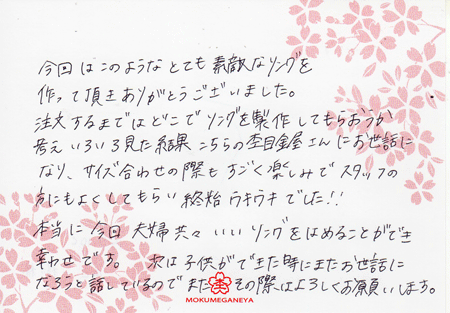 今回はこのようなとても素敵なリングを
作って頂きありがとうございました。
注文するまではどこでリングを製作してもらおうか
考えいろいろ見た結果こちらの杢目金屋さんにお世話に
なり、サイズ合わせの際もすごく楽しみでスタッフの
方にもよくしてもらい終始ウキウキでした!!
本当に今回夫婦共々いいリングをはめることができ
幸わせです。次は子供ができた時にまたお世話に
なろうと話しているのでまたその際はよろしくお願いします。
MOKUMEGANEYA